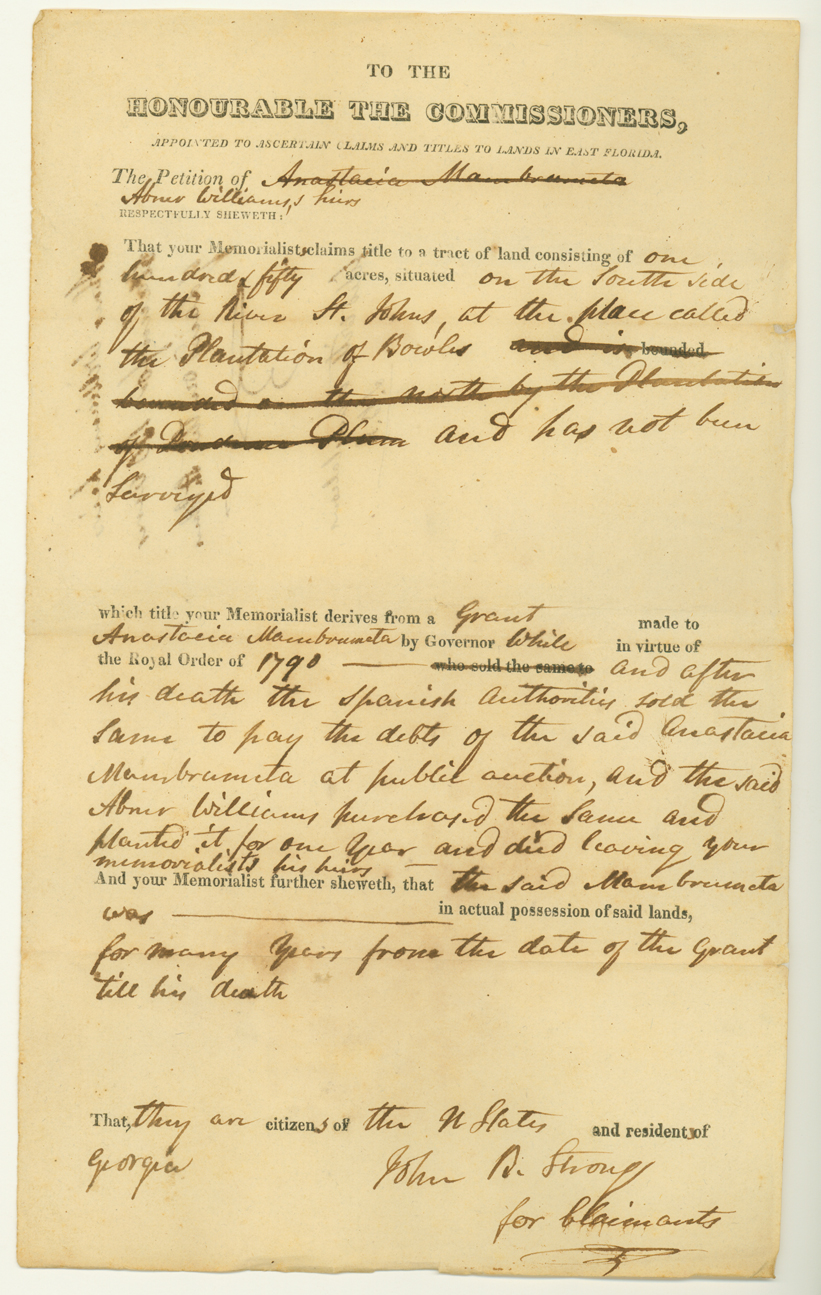 TO THE
HONOURABLE THE COMMISSIONERS,
APPOINTED TO ASCERTAIN CLAIMS AND TITLES TO LANDS IN EAST FLORIDA.
The Petition of Anastacia Mambrumeta
Abner Williams,s hiers
RESPECTFULLY SHEWETH:
That your Memorialists claims title to a tract of land consisting of one
hundred & fifty acres, situated on the South side
of the River St. Johns, at the place called
the Plantation of Bowles and is bounded
bounded on the north by the Plantation
of Plum and has not been
Surveyed
which title your Memorialist derives from a Grant made to
Anastacia Mambrumeta by Governor White in virtue of
the Royal Order of 1790 — who sold the same to and after
his death the Spanish Authorities sold the
Same to pay the debts of the said Anastacia
Mambrumeta at public auction, and the said
Abner Williams purchased the Same and
planted it for one Year and died leaving your
memorialists his hiers —
And your Memorialist further sheweth, that the said Mambrumeta
was — in actual possession of said lands,
for many Years from the date of the Grant
till his death
That, they are citizens of the U States and residents of
Georgia John B. Strong
for Claimants